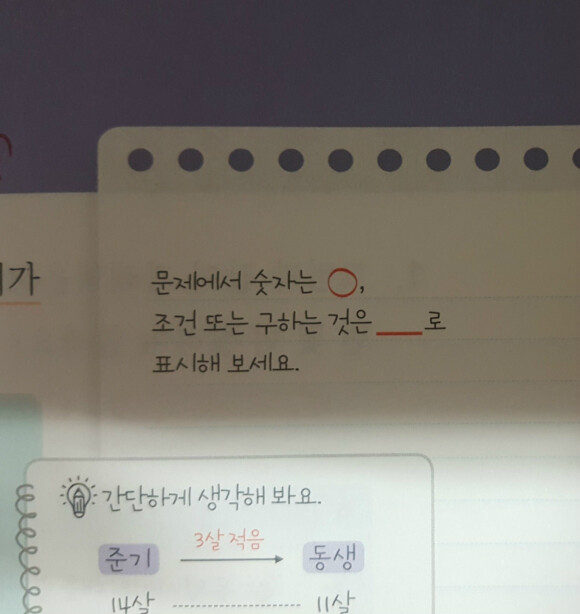 가
문제에서 숫자는 ◯,
조건 또는 구하는 것은 ___ 로
표시해 보세요.
간단하게 생각해 봐요.
3살 적음
준기 → 동생
14살 ---------- 11살